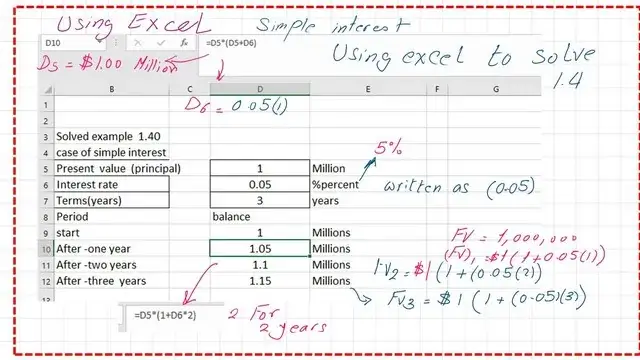 Using Excel
Simple interest
D10
=D5*(D5+D6)
Using excel to solve
1.4
D5 = $1.00 Million
D6 = 0.05(1)
B C D E F G
1
2
3 Solved example 1.40
4 case of simple interest
5%
5 Present value (principal) 1 Million
6 Interest rate 0.05 %percent
written as (0.05)
7 Terms(years) 3 years
8 Period balance
9 start 1 Millions
FV = 1,000,000
10 After -one year 1.05 Millions
(FV)1 = $1(1+0.05(1)
11 After -two years 1.1 Millions
FV2 = $1(1+(0.05(2)
12 After -three years 1.15 Millions
FV3 = $1(1+(0.05)(3)
=D5*(1+D6*2)
2 For
2 years